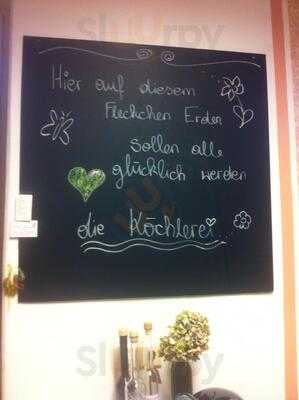 Hier auf diesem
Fleckchen Erden
sollen alle
glücklich werden
die Köchlerei